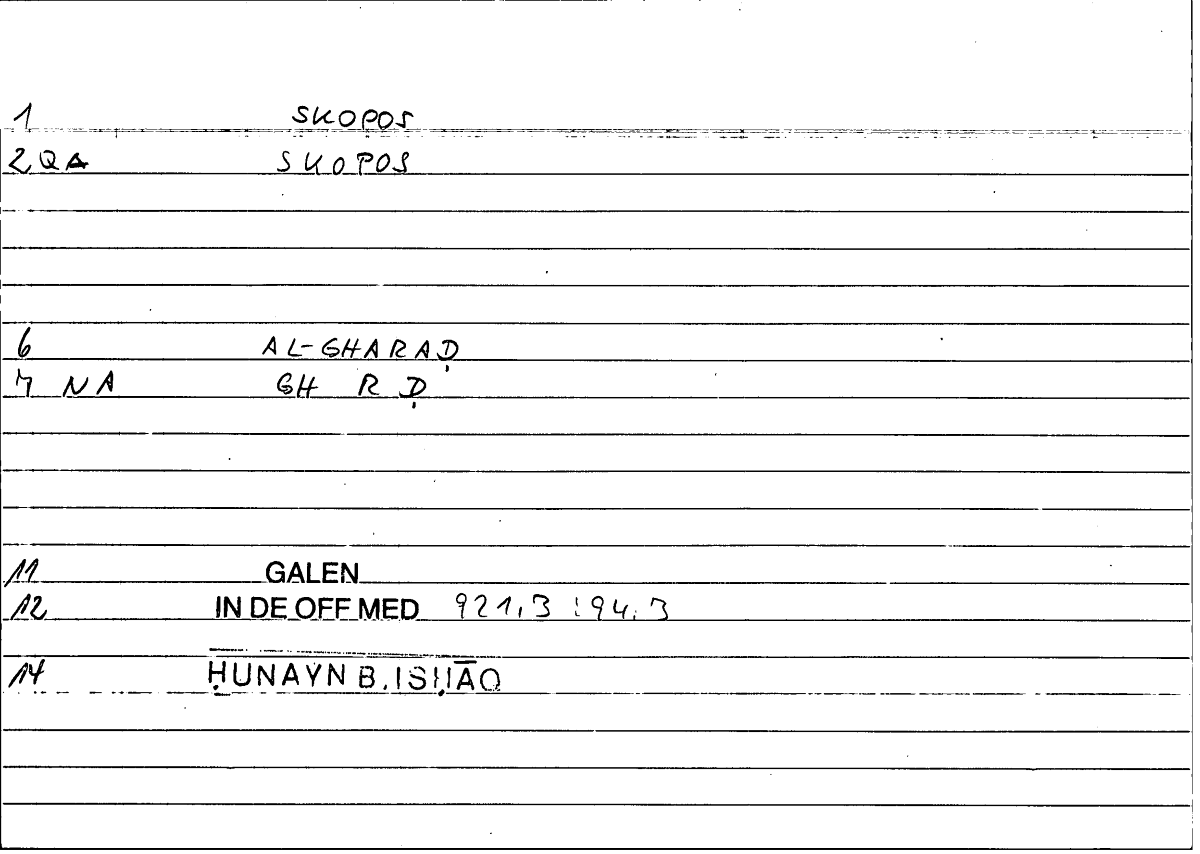 1 SKOPOS
2 QA SKOPOS
6 AL-GHARAḌ
7 NA GH R Ḍ
11 GALEN
12 IN DE OFF MED 921,3 : 94,3
14 ḤUNAYN B. ISḤĀQ